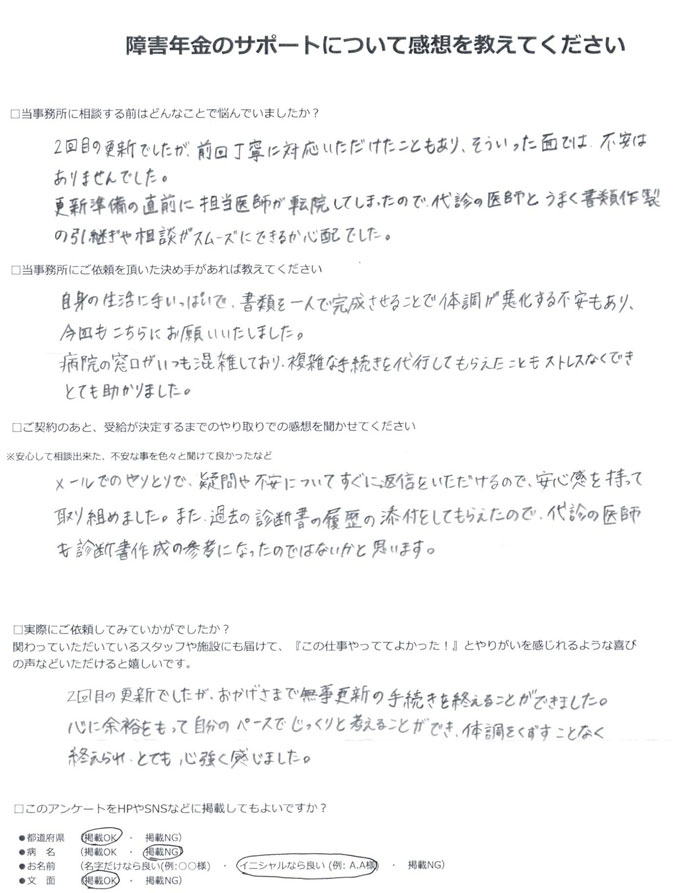 障害年金のサポートについて感想を教えてください
□当事務所に相談する前はどんなことで悩んでいましたか？
2回目の更新でしたが、前回丁寧に対応いただけたこともあり、そういった面では、不安は
ありませんでした。
更新準備の直前に担当医師が転院してしまったので、代診の医師とうまく書類作製
の引継ぎや相談がスムーズにできるか心配でした。
□当事務所にご依頼を頂いた決め手があれば教えてください
自身の生活に手いっぱいで、書類を一人で完成させることで体調が悪化する不安もあり、
今回もこちらにお願いいたしました。
病院の窓口がいつも混雑しており、複雑な手続きを代行してもらえたこともストレスなくでき
とても助かりました。
□ご契約のあと、受給が決定するまでのやり取りでの感想を聞かせてください
※安心して相談出来た、不安な事を色々と聞けて良かったなど
メールでのやりとりで、疑問や不安についてすぐに返信をいただけるので、安心感を持って
取り組めました。また、過去の診断書の履歴の添付をしてもらえたので、代診の医師
も診断書作成の参考になったのではないかと思います。
□実際にご依頼してみていかがでしたか？
関わっていただいているスタッフや施設にも届けて、『この仕事やっててよかった！』とやりがいを感じれるような喜び
の声などいただけると嬉しいです。
2回目の更新でしたが、おかげさまで無事更新の手続きを終えることができました。
心に余裕をもって自分のペースでじっくりと考えることができ、体調をくずすことなく
終えられ、とても心強く感じました。
□このアンケートをHPやSNSなどに掲載してもよいですか？
●都道府県　（掲載OK　・　掲載NG）
●病　名　（掲載OK　・　掲載NG）
●お名前　（名字だけなら良い(例:○○様)　・　イニシャルなら良い（例: A.A様）　・　掲載NG）
●文　面　（掲載OK　・　掲載NG）